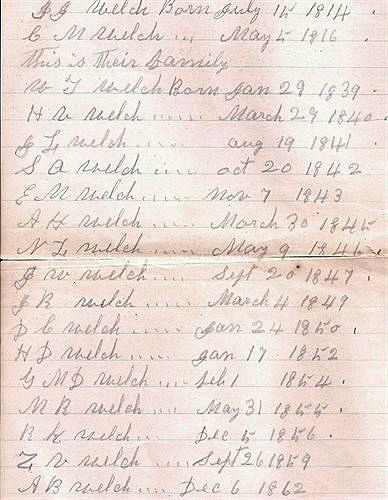 J J Welch Born July 15 1814 .
C M Welch .... May 5 1816 .
this is their Family
W T Welch Born Jan 29 1839 .
H V Welch ..... March 29 1840 .
J L Welch ..... aug 19 1841 .
S A Welch .... oct 20 1842
E M Welch .... Nov 7 1843
A H Welch .... March 30 1845
N L Welch .... May 9 1846 .
J W Welch ..... Sept 20 1847 .
J R Welch .... March 4 1849
D C Welch ..... Jan 24 1850 .
H D Welch ..... Jan 17 1852
G M D Welch ... Feb 1 1854 .
M R Welch .... May 31 1855 .
R K Welch .... Dec 5 1856 .
Z V Welch .... Sept 26 1859
A B Welch .... Dec 6 1862